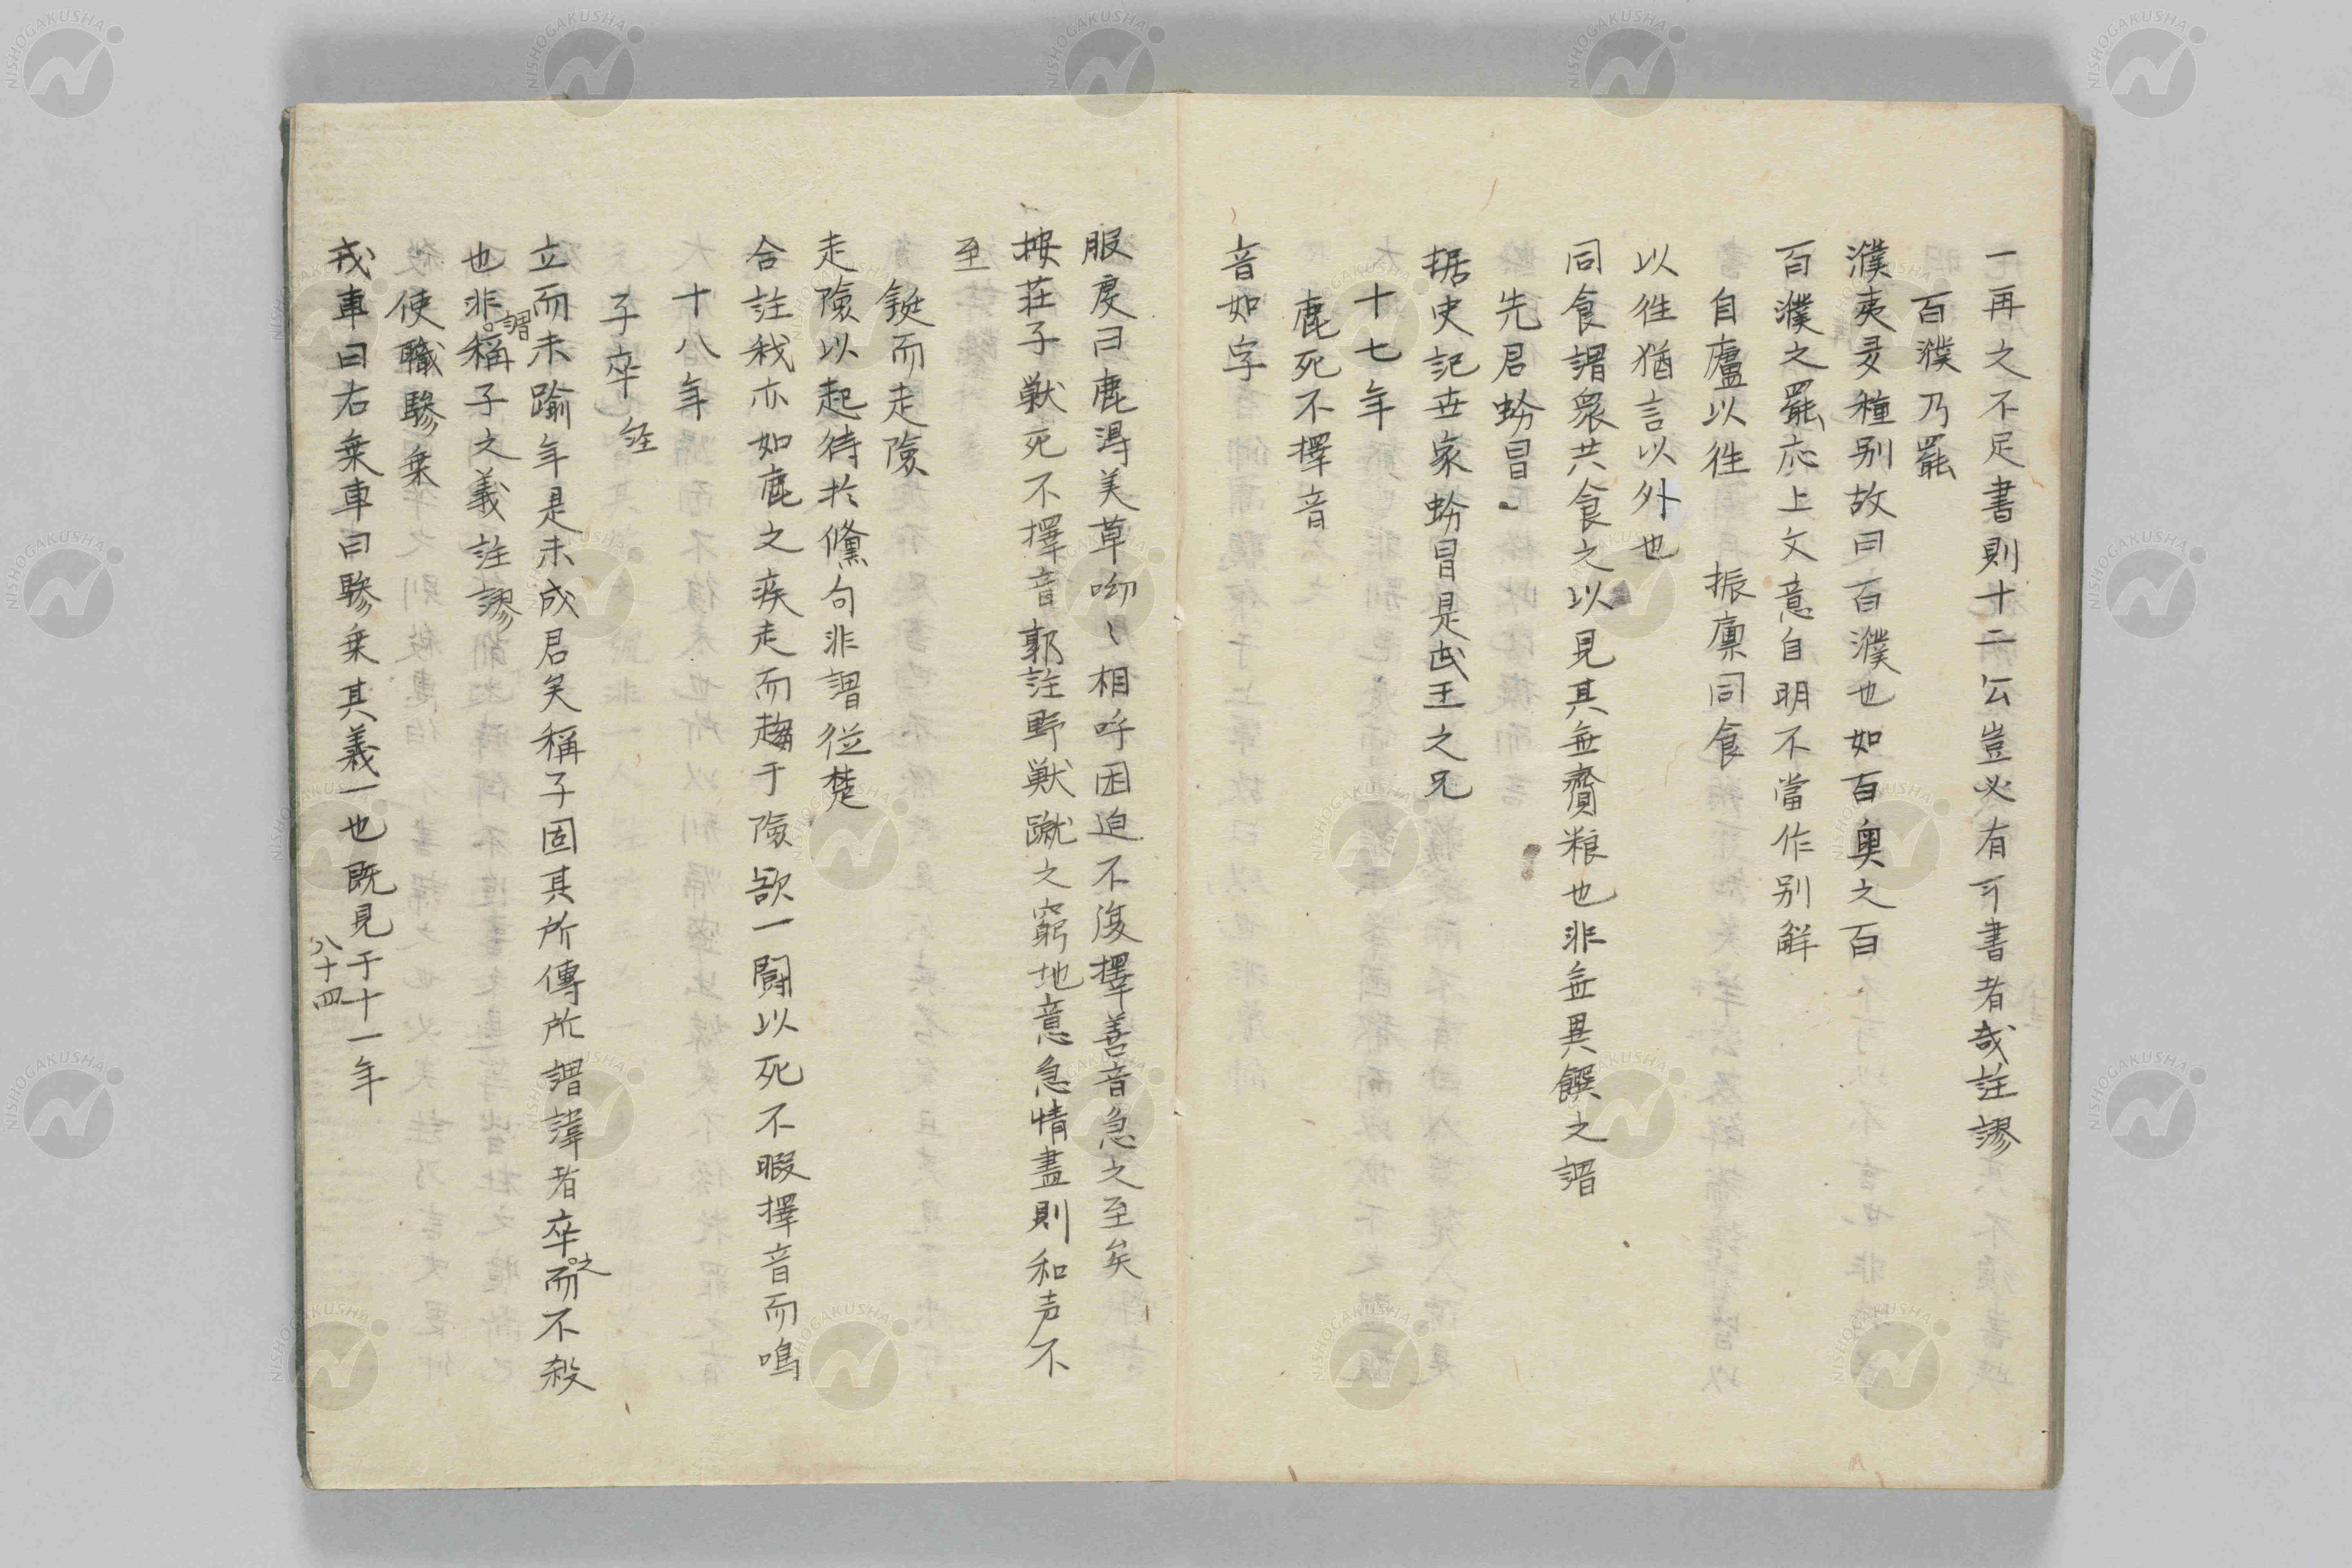 一再之不足書則十二公豈必有可書者哉註謬
百濮乃罷
濮夷多種别故曰百濮也如百奥之百
百濮之罷応上文意自明不當作别解
自廬以徃　振廪同食
以徃猶言以外也
同食謂衆共食之以見其無齎粮也非無異饌之謂
先君蚡冒
据史記世家蚡冒是武王之兄
十七年
鹿死不擇音
音如字
服虔曰鹿淂美草呦〻相呼困迫不復擇善音急之至矣
按荘子獣死不擇音郭註野獣蹴之窮地意急情盡則和声不
至
鋌而走険
走険以起待於儵句非謂従楚
合註我亦如鹿之疾走而趨于険欲一闘以死不暇擇音而鳴
十八年
子卒 経
立而未踰年是未成君矣稱子固其所傳所謂諱者卒之而不殺
也非謂稱子之義註謬
使職驂乗
戎車曰右乗車曰驂乗其義一也既見于十一年
八十四
NISHOGAKUSHA